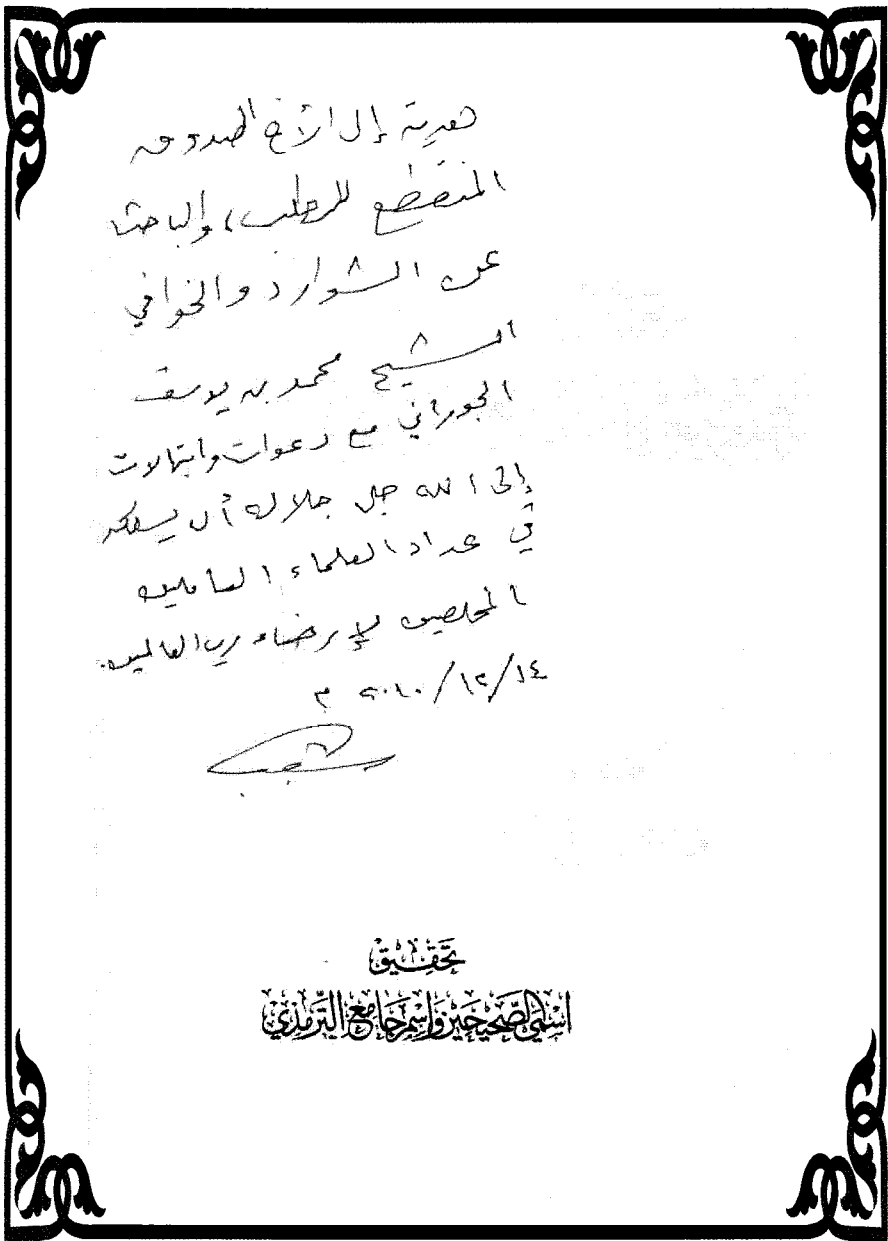 هدية إلى الأخ الصدوق
المنقطع للطلب، والباحث
عن الشوارد والخوافي
الشيخ محمد بن يوسف
الجوراني مع دعوات وابتهالات
إلى الله جل جلاله أن يسلكه
في عداد العلماء العاملين
المخلصين لإرضاء رب العالمين.
١٤/١٢/٢٠١٠ م
شعيب
تحقيق
اسمي الصحيحين واسم جامع الترمذي